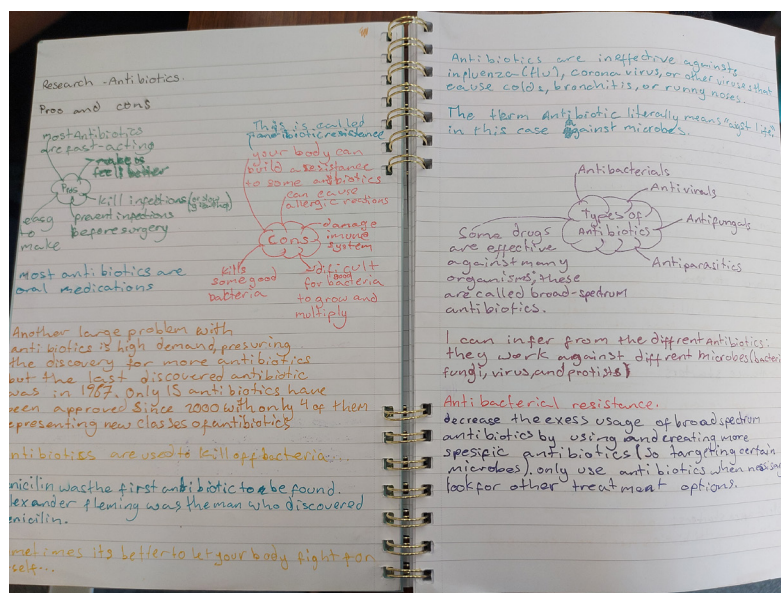 Research - Antibiotics.
Pros and cons
most Antibiotics
are fast-acting
makes
feel better
Pros
kill infections
prevent infections
before surgery
easy
to
make
most antibiotics are
oral medications
This is called
antibiotic resistance
your body can
build a resistance
to some antibiotics
can cause
allergic reactions
Cons
damage
imune
system
kills
some good
bacteria
dificult
for good bacteria
to grow and
multiply
Another large problem with
antibiotics is high demand, presuring
the discovery for more antibiotics
but the last discovered antibiotic
was in 1987. Only 15 antibiotics have
een approved since 2000 with only 4 of them
epresenting new classes of antibiotics
ntibiotiss are used to kill off bacteria...
nicilin was the first antibiotic to be found.
lexander fleming was the man who discovered
enicilin.
metimes its better to let your body fight for
self...
Antibiotics are ineffective againsts
influenza (flu), corona virus, or other viruses that
cause colds, bronchitis, or runny noses.
The term Antibiotic literally means against life
in this case against microbes.
Antibacterials
Antivirals
Types of
Antibiotics
Antifungals
Antiparasitics
Some drugs
are effective
against many
organisms; these
are called broad-spectrum
antibiotics.
I can infer from the diffrent Antibiotics:
they work against diffrent microbes (bacteri
fungi, virus, and protists)
Antibacterial resistance.
decrease the exess usage of broad spectrum
antibiotics by using and creating more
spesific antibiotics (so targeting certain
microbes). only use antibiotics when
look for other treatment options.